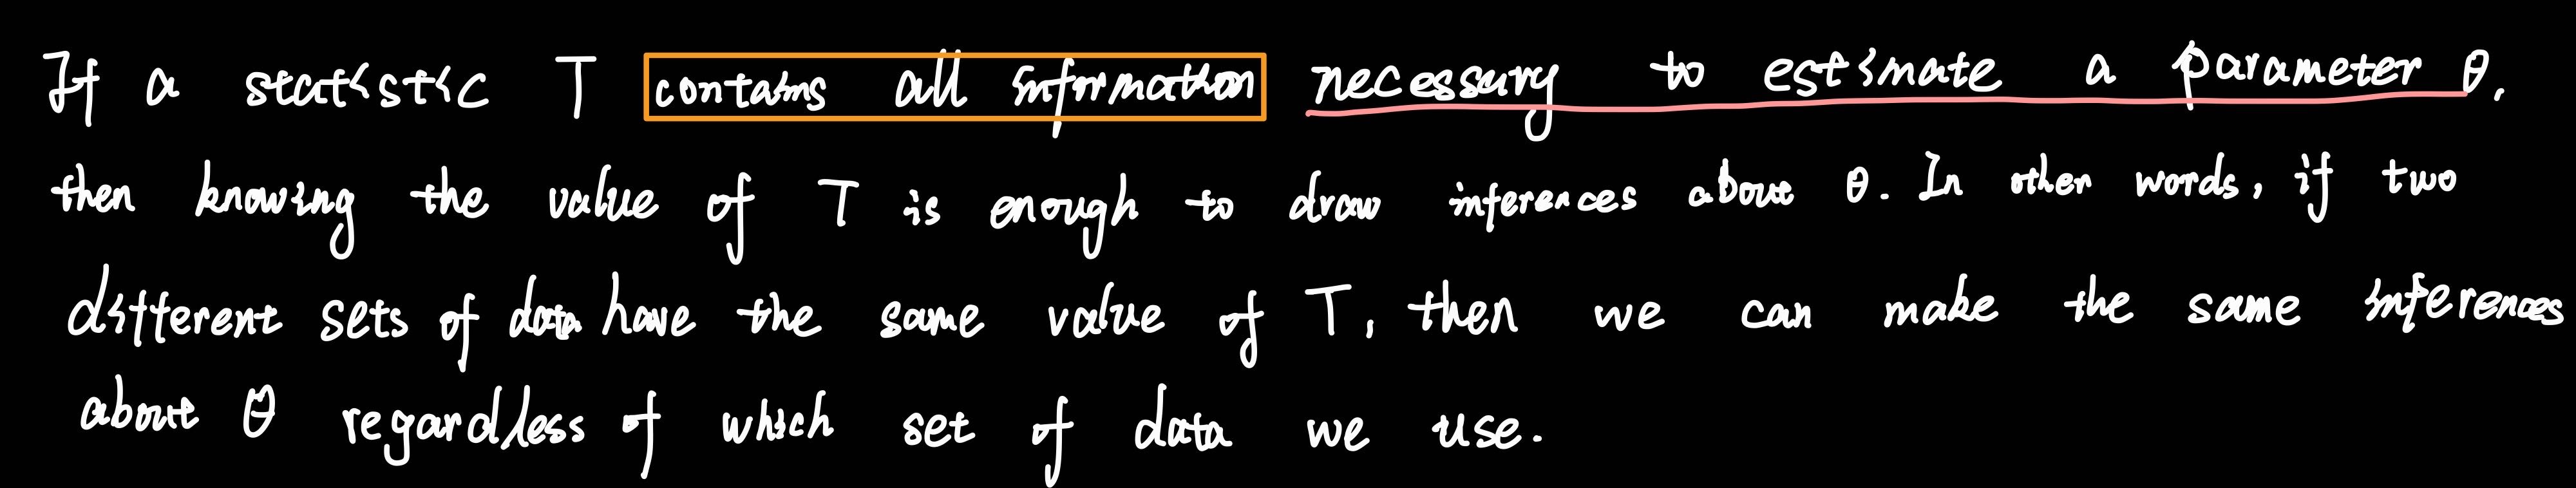 If a statistic T contains all information necessary to estimate a parameter θ,
then knowing the value of T is enough to draw inferences about θ. In other words, if two
different sets of data have the same value of T, then we can make the same inferences
about θ regardless of which set of data we use.